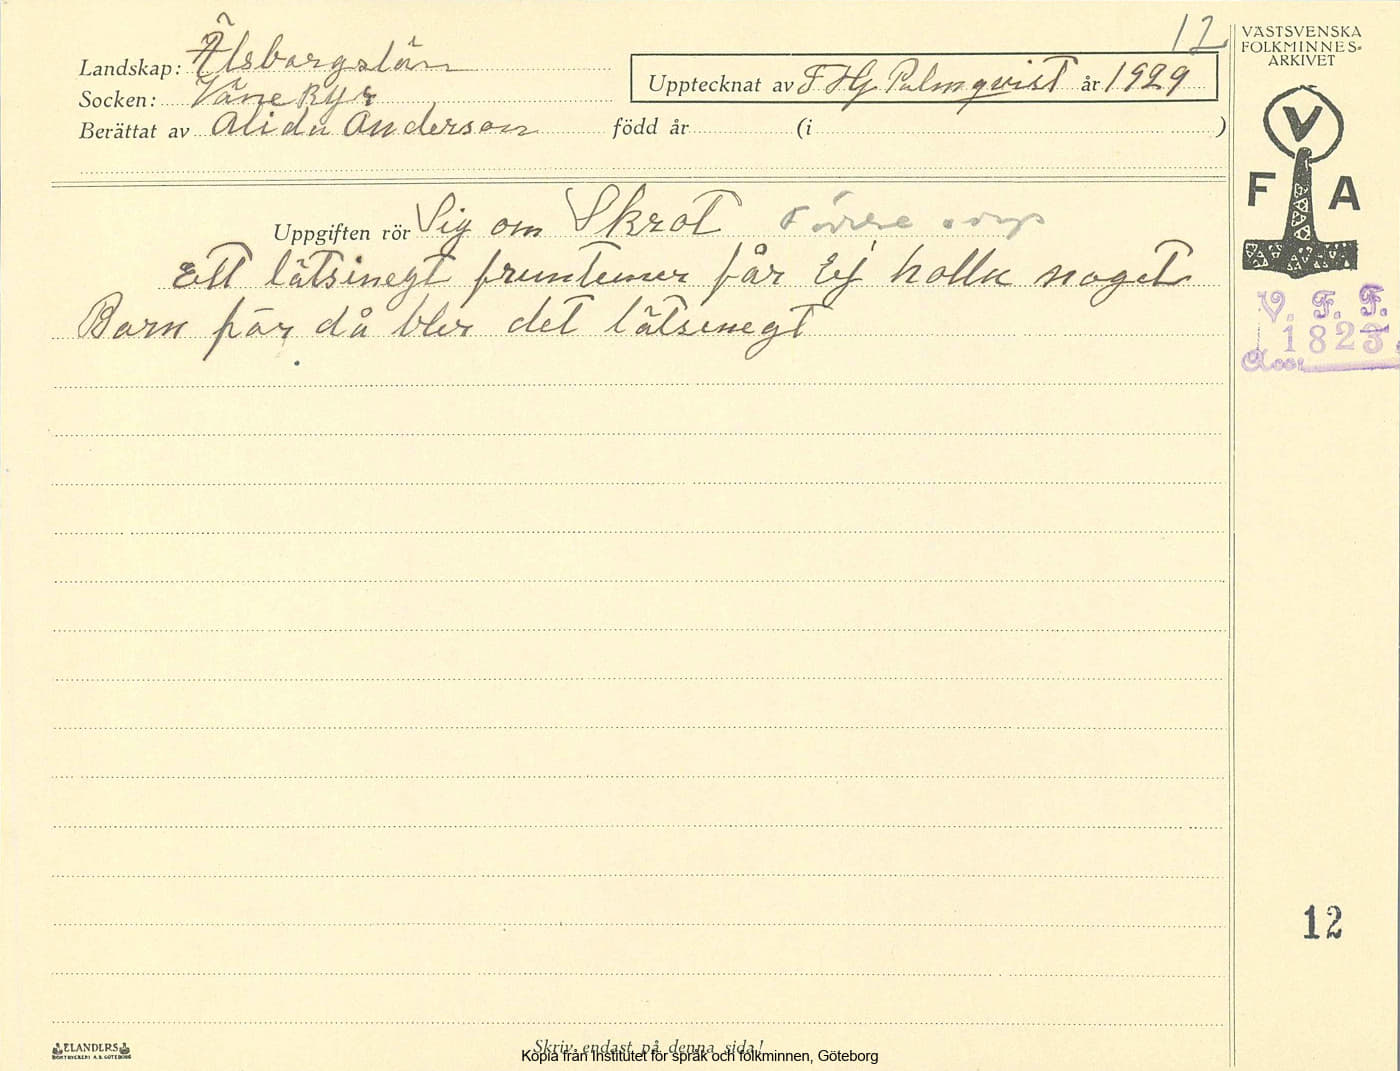 12
VÄSTSVENSKA
FOLKMINNES-
ARKIVET
Landskap: Älsborgslän
Socken: Väne Ryr
Upptecknat av F Hj Palmqvist år 1929
Berättat av Alida Anderson född år (i )
V
F A
Uppgiften rör Sig om Skrot
Ett lätsinegt fruntemer får Ej holla noget
Barn för då bler det lätsinegt
V. F. F.
1823
Acc.
12
ELANDERS
BOKTRYCKERI A.B. GÖTEBORG
Skriv endast på denna sida!
Kopia från Institutet för språk och folkminnen, Göteborg